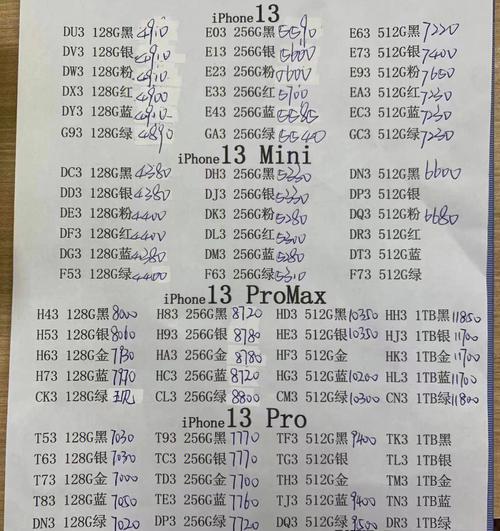 iPhone13
DU3 128G黑 4910 E03 256G黑 5590 E63 512G黑 7220
DV3 128G银 4910 E13 256G银 5600 E73 512G银 7400
DW3 128G粉 4910 E23 256G粉 5600 E93 512G粉 7650
DX3 128G红 4900 E33 256G红 5700 EA3 512G红 7230
DY3 128G蓝 4910 E43 256G蓝 5585 EC3 512G蓝 7230
G93 128G绿 4890 GA3 256G绿 5540 GC3 512G绿 7230
iPhone13 Mini
DC3 128G黑 4380 DH3 256G黑 5330 DN3 512G黑 6600
DD3 128G银 4380 DJ3 256G银 5330 DP3 512G银
DE3 128G粉 4400 DK3 256G粉 5280 DQ3 512G粉 6680
DF3 128G红 4400 DL3 256G红 5300 DR3 512G红
DG3 128G蓝 4380 DM3 256G蓝 5280 DT3 512G蓝
F53 128G绿 4400 F63 256G绿 5310 F73 512G绿
iPhone13 ProMax
H43 128G黑 8000 H83 256G黑 8720 HD3 512G黑 10350 HH3 1TB黑 11850
H53 128G银 8060 H93 256G银 8780 HE3 512G银 10350 HJ3 1TB银 11700
H63 128G金 7930 HA3 256G金 8780 HF3 512G金 HK3 1TB金 11700
H73 128G蓝 7970 HC3 256G蓝 8720 HG3 512G蓝 10200 HL3 1TB蓝 11700
CK3 128G绿 CL3 256G绿 8800 CM3 512G绿 10300 CN3 1TB绿 11800
iPhone13 Pro
T53 128G黑 7030 T93 256G黑 7770 TF3 512G黑 9400 TK3 1TB黑
T63 128G银 7030 TC3 256G银 7770 TG3 512G银 TL3 1TB银
T73 128G金 7000 TD3 256G金 7700 TH3 512G金 TM3 1TB金
T83 128G蓝 7050 TE3 256G蓝 7760 TJ3 512G蓝 9400 TN3 1TB蓝
DN3 128G绿 7020 DP3 256G绿 7720 DQ3 512G绿 9500 DR3 1TB绿